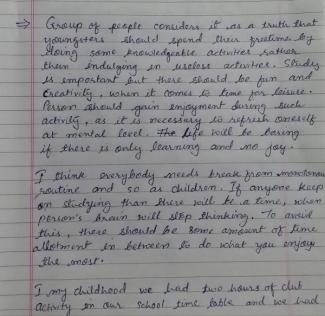 ⇒ Group of people considers it as a truth that
youngsters should spend their freetime by
doing some knowledgeable activities rather
then indulging in useless activities. Studies
is important but there should be fun and
creativity, when it comes to time for leisure.
Person should gain enjoyment during such
activity, as it is necessary to refresh oneself
at mental level. The Life will be boring
if there is only learning and no joy.
I think everybody needs break from monotonous
routine and so as children. If anyone keep
on studying than there will be a time, when
person's brain will stop thinking. To avoid
this, there should be some amount of time
allotment in between to do what you enjoy
the most.
I my childhood we had two hours of club
activity in our school time table and we had